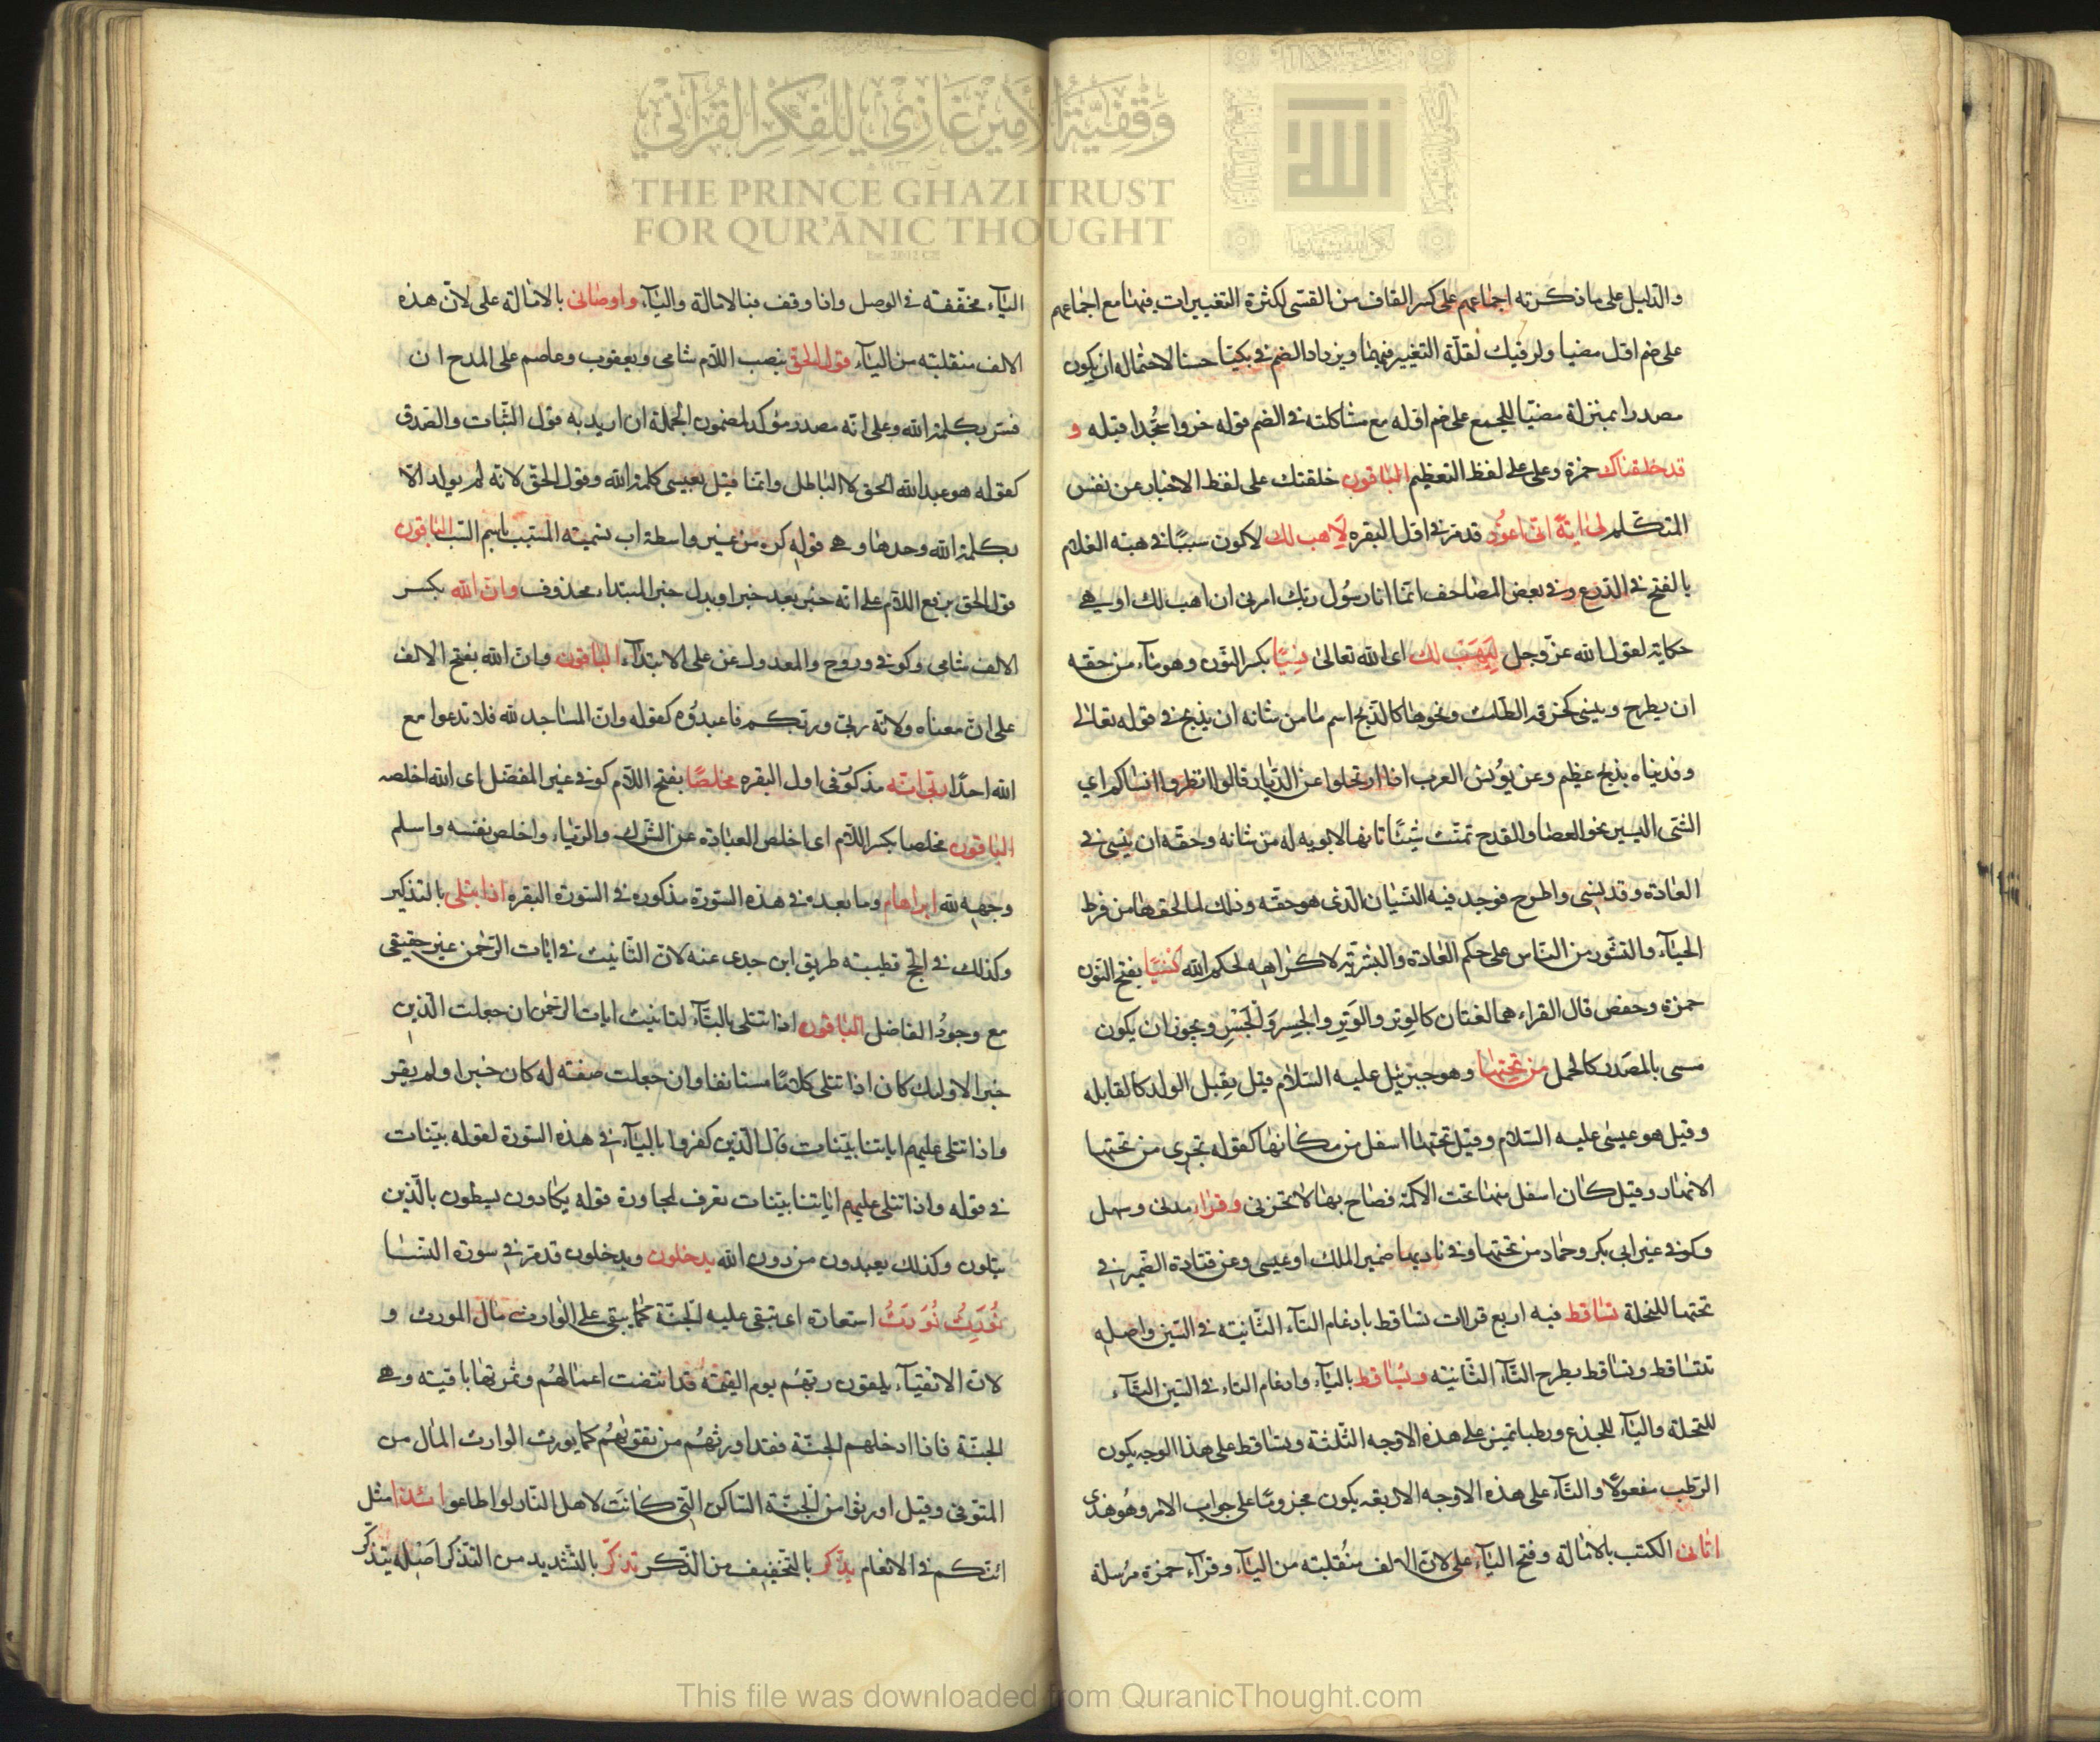 وقفية الأمير غازي للفكر القرآني
THE PRINCE GHAZI TRUST
FOR QUR'ĀNIC THOUGHT
Est. 2012 CE
والدليل على ما ذكرته اجماعهم على كسر القاف من القسى لكثرة التغييرات فيها مع اجماعهم
على ضم اول مضيا ولرقيك لقلة التغيير فيهما ويزداد الضم فى بكيا حسنا لاحتماله ان يكون
مصدرا بمنزلة مضيا للجمع على ضم اوله مع مشاكلته فى الضم قوله خروا سجدا قبله و
قد خلقناك حمزة وعلى على لفظ التعظيم الباقون خلقتك على لفظ الاخبار عن نفس
المتكلم لى اية انى اعوذ قد مر فى اول البقره لاهب لك لاكون سببا فى هبة الغلام
بالفتح فى الدرع وفى بعض المصاحف انما انا رسول ربك امرنى ان اهب لك او هى
حكاية لقول الله عز وجل ليهب لك اى الله تعالى نسيا بكسر النون وهو ما من حقه
ان يطرح وينسى كخرقة الطمث ونحوها كالذبح اسم ما من شانه ان يذبح فى قوله تعالى
وفديناه بذبح عظيم وعن يونس العرب اذا ارتحلوا عن الديار قالوا انظروا انساكم اي
الشئ اليسير نحو العصا والقدح تمنت شيئا تافها لا يوبه له من شانه وحقه ان ينسى فى
العادة وقد نسى واطرح فوجد فيه النسيان الذى هو حقه وذلك لما لحقها من فرط
الحياء والتستر من الناس على حكم العادة والبشرية لا كراهه لحكم الله نسيا بفتح النون
حمزة وحفص قال الفراء هما لغتان كالوتر والوتر والجسر والجسر ويجوز ان يكون
مسمى بالمصدر كالحمل من تحتها وهو جبرئيل عليه السلام قيل يقبل الولد كالقابله
وقيل هو عيسى عليه السلام وقيل تحتها اسفل من مكانها كقوله تجرى من تحتها
الانهار وقيل كان اسفل منها تحت الاكمة فصاح بها لا تحزنى وقرا مدنى وسهل
وكوفى غير ابى بكر وحماد من تحتها وفى ناديها ضمير الملك او عيسى وعن قتادة الضمير فى
تحتها للنخلة تساقط فيه اربع قراات تساقط بادغام التاء الثانيه فى السين واصله
تتساقط وتساقط بطرح التاء الثانيه ويساقط بالياء وادغام التاء فى السين التاء
للنخلة والياء للجذع ورطبا تميز على هذه الاوجه الثلثة وتساقط على هذا الوجه يكون
الرطب مفعولا والتاء على هذه الاوجه الاربعه يكون مجزوما على جواب الامر وهو هزى
اتانى الكتب بالامالة وفتح الياء على لان الالف منقلبه من الياء وقراء حمزة مرسلة
الياء مخففة فى الوصل واذا وقف فبالامالة والياء واوصانى بالامالة على لان هذه
الالف منقلبه من الياء قول الحق بنصب اللام شامى ويعقوب وعاصم على المدح ان
فسر بكلمة الله وعلى انه مصدر موكد لمضمون الجملة ان اريد به قول الثبات والصدق
كقوله هو عبد الله الحق لا الباطل وانما قيل لعيسى كلمة الله وقول الحق لانه لم يولد الا
بكلمة الله وحدها وهى قوله كن من غير واسطة اب تسمية المسبب باسم السبب الباقون
قول الحق برفع اللام على انه خبر بعد خبر او بدل خبر المبتداء محذوف وان الله بكسر
الالف شامى وكوفى وروح والمعدول عن على الابتداء الباقون وان الله بفتح الالف
على ان معناه ولانه ربى وربكم فاعبدوه كقوله وان المساجد لله فلا تدعوا مع
الله احدا ربى انه مذكور فى اول البقره مخلصا بفتح اللام كوفى غير المفضل اى الله اخلصه
الباقون مخلصا بكسر اللام اى اخلص العبادة عن الشرك والرياء واخلص نفسه واسلم
وجهه لله ابراهام وما بعده فى هذه السورة مذكوره فى السورة البقره اذا يتلى بالتذكير
وكذلك فى الحج قطيبته طريق ابن جدى عنه لان التانيث فى ايات الرحمن غير حقيقى
مع وجود الفاضل الباقون اذا تتلى بالتاء لتانيث ايات الرحمن ان جعلت الذين
خبر الاوليك كان اذا تتلى كلاما مستانفا وان جعلت صفته له كان خبرا ولم يقر
واذا تتلى عليهم اياتنا بينات قال الذين كفروا بالياء فى هذه السورة لقوله بينات
فى قوله واذا تتلى عليهم اياتنا بينات تعرف لمجاورة قوله يكادون يسطون بالذين
يتلون وكذلك يعبدون من دون الله يدخلون ويدخلون قد مر فى سورة النسا
نورث نورث استعارة اى تبقى عليه الجنة كما يبقى على الوارث مال المورث و
لان الاتقياء يلقون ربهم يوم القيمة قد انقضت اعمالهم وثمرتها باقيته وهى
الجنة فاذا ادخلهم الجنة فقد اورثهم من تقويهم كما يورث الوارث المال من
المتوفى وقيل اورثوا من الجنة المساكن التى كانت لاهل النار لو اطاعوا ائذا مثل
ائنكم فى الانعام يذكر بالتخفيف من الذكر تذكر بالتشديد من التذكر اصله يتذكر
This file was downloaded from QuranicThought.com